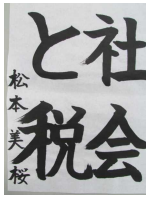 社会
と税
松本美桜